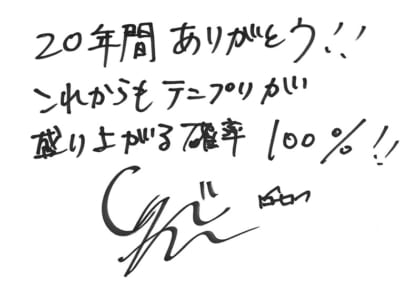 20年間 ありがとう!!
これからもテニプリが
盛り上がる確率 100%!!